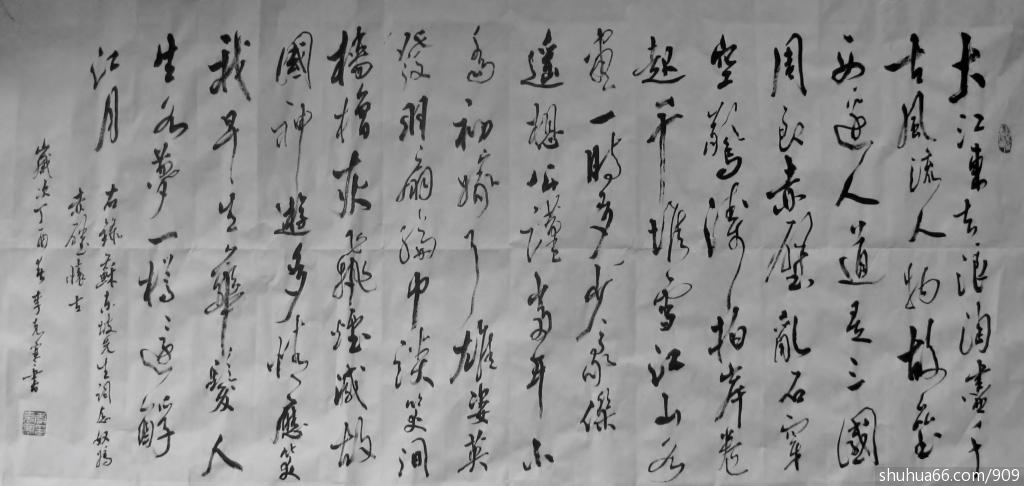 大江東去浪淘盡千
古風流人物故壘
西邊人道是三國
周郎赤壁亂石穿
空驚濤拍岸卷
起千堆雪江山如
畫一時多少豪傑
遙想公瑾當年小
喬初嫁了雄姿英
發羽扇綸巾談笑間
檣櫓灰飛煙滅故
國神遊多情應笑
我早生華髮人
生如夢一樽還酹
江月
右錄蘇東坡先生詞念奴嬌
赤壁懷古
歲次丁酉春李克書
shuhua66.com/909